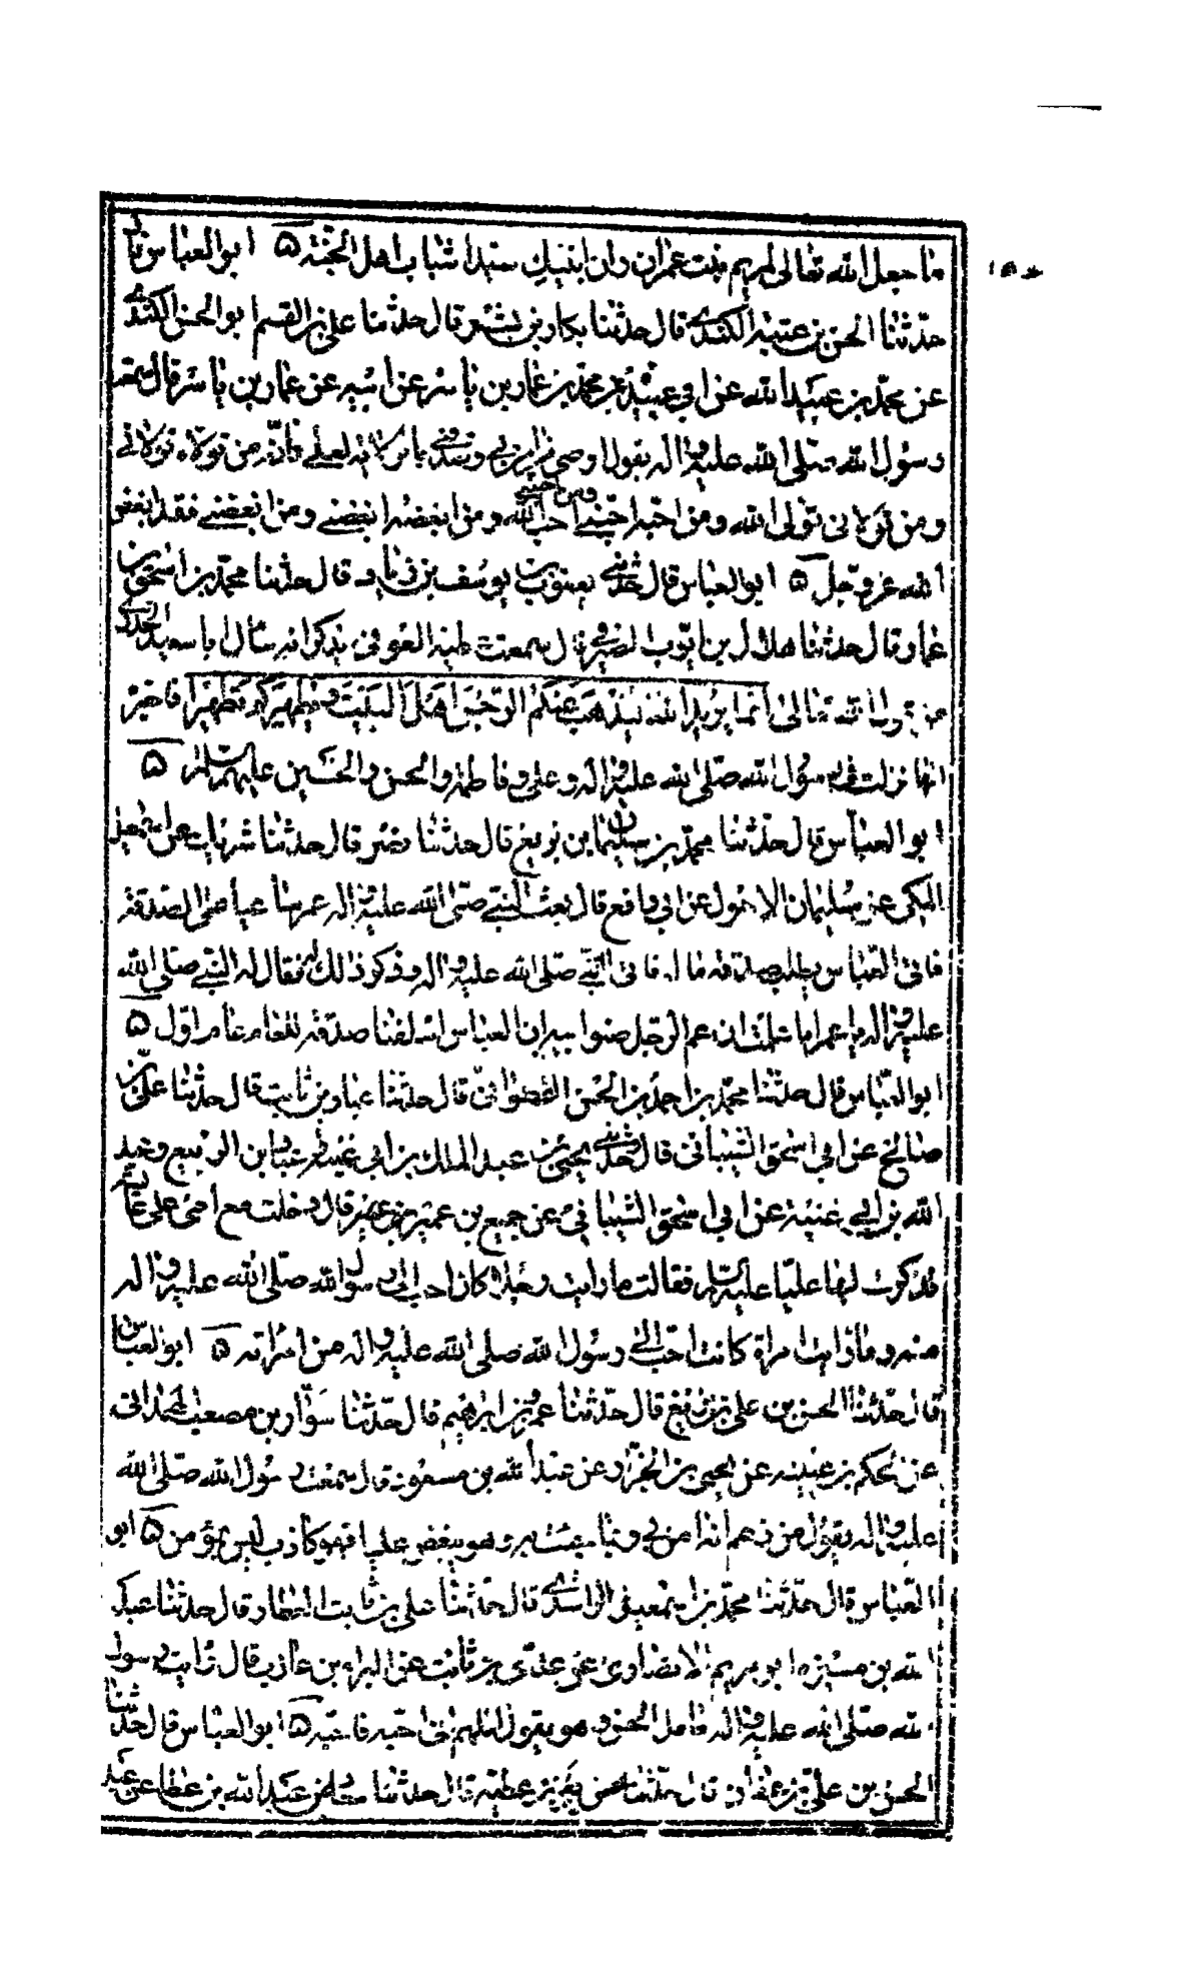 ما جعل الله تعالى لمريم بنت عمران وان ابنيك سيدا شباب اهل الجنة ۵ ابو العباس قال
حدثنا الحسن بن عتبة الكندي قال حدثنا بكار بن بشر قال حدثنا علي بن القسم ابو الحسن الكندي
عن محمد بن عبيد الله عن ابي عبيدة بن محمد بن عمار بن ياسر عن ابيه عن عمار بن ياسر قال سمعت
رسول الله صلى الله عليه واله يقول اوصي من امن بي وصدقني بالولاية لعلي فانه من تولاه تولاني
ومن تولاني تولى الله ومن احبه احبني ومن احبني احب الله ومن ابغضه ابغضني ومن ابغضني فقد ابغض
الله عز وجل ۵ ابو العباس قال حدثني يعقوب بن يوسف بن زياد قال حدثنا محمد بن اسحق بن
عمار قال حدثنا هلال بن ايوب الصيرفي قال سمعت عطية العوفي يذكر انه سال ابا سعيد الخدري
عن قول الله تعالى انما يريد الله ليذهب عنكم الرجس اهل البيت ويطهركم تطهيرا فاخبره
انها نزلت في رسول الله صلى الله عليه واله وعلي وفاطمة والحسن والحسين عليهم السلام ۵
ابو العباس قال حدثنا محمد بن سليمان بن بزيع قال حدثنا نصر قال حدثنا شريك عن اسمعيل
المكي عن سليمان الاحول عن ابي رافع قال بعث النبي صلى الله عليه واله عمر ساعيا على الصدقة
فاتى العباس يطلب صدقة ماله فاتى النبي صلى الله عليه واله وذكر ذلك له فقال له النبي صلى الله
عليه واله يا عمر اما علمت ان عم الرجل صنو ابيه ان العباس اسلفنا صدقته للعام عام اول ۵
ابو العباس قال حدثنا محمد بن احمد بن الحسن القطواني قال حدثنا عباد بن ثابت قال حدثنا علي بن
صالح عن ابي اسحق الشيباني قال حدثني يحيى بن عبد الملك بن ابي غنية وعباد بن الربيع وعبد
الله بن ابي غنية عن ابي اسحق الشيباني عن جميع بن عمير قال دخلت مع امي على عائشة
فذكرت لها عليا عليه السلم فقالت ما رايت رجلا كان احب الى رسول الله صلى الله عليه واله
منه وما رايت امراة كانت احب الى رسول الله صلى الله عليه واله من امراته ۵ ابو العباس
قال حدثنا الحسن بن علي بن بزيع قال حدثنا عمر بن ابرهيم قال حدثنا سوار بن مصعب الهمداني
عن الحكم بن عيينه عن يحيى بن الجزار عن عبد الله بن مسعود قال سمعت رسول الله صلى الله
عليه واله يقول من زعم انه امن بي وبما جئت به وهو يبغض عليا فهو كاذب ليس بمؤمن ۵ ابو
العباس قال حدثنا محمد بن اسمعيل الراشدي قال حدثنا علي بن ثابت العطار قال حدثنا عبد
الله بن ميسرة ابو مريم الانصاري عن عدي بن ثابت عن البراء بن عازب قال رايت رسول
الله صلى الله عليه واله حامل الحسن وهو يقول اللهم اني احبه فاحبه ۵ ابو العباس قال حدثنا
الحسن بن علي بن عفان قال حدثنا حسن يعني بن عطية قال حدثنا عن عبد الله بن عطا عن عبد